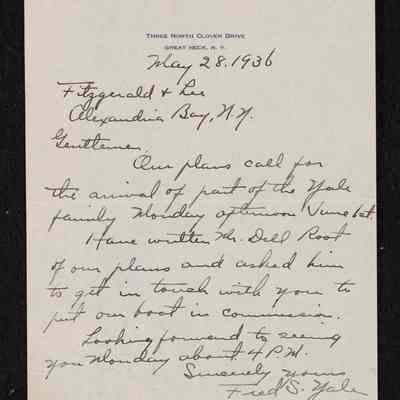 THREE NORTH CLOVER DRIVE
GREAT NECK, N. Y.
May 28. 1936
Fitzgerald & Lee
Alexandria Bay, N.Y.
Gentlemen,
Our plans call for
the arrival of part of the Yale
family Monday afternoon June 1st.
Have written Mr. Dell Root
of our plans and asked him
to get in touch with you to
put our boat in commission.
Looking forward to seeing
you Monday about 4 P.M.
Sincerely yours
Fred S. Yale